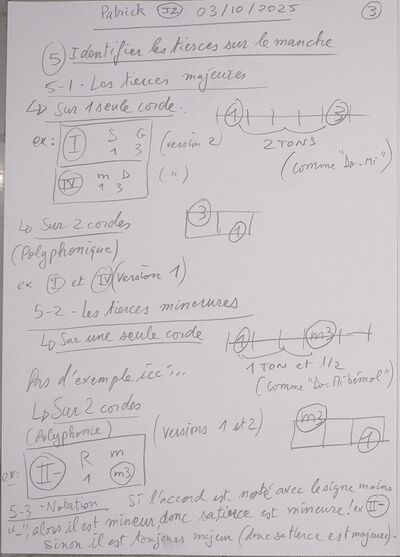 Patrick JZ 03/10/2025 3
5 Identifier les tierces sur le manche
5-1 - Les tierces majeures
↳ Sur 1 seule corde :
1 3
ex : I S G (version 2) 2 TONS
1 3
(comme "Do-Mi")
IV m D ( " )
1 3
↳ Sur 2 cordes 3
(Polyphonique) 1
ex I et IV (version 1)
5-2 - Les tierces mineures
↳ Sur une seule corde 1 m3
1 TON et 1/2
Pas d'exemple ici... (comme "Do-Mi bémol")
↳ Sur 2 cordes
(Polyphonie) (versions 1 et 2) m3
1
ex : II- R m
1 m3
5-3 - Notation Si l'accord est noté avec le signe moins
"-", alors il est mineur, donc sa tierce est mineure ! ex II-
Sinon il est toujours majeur (donc sa tierce est majeure) -